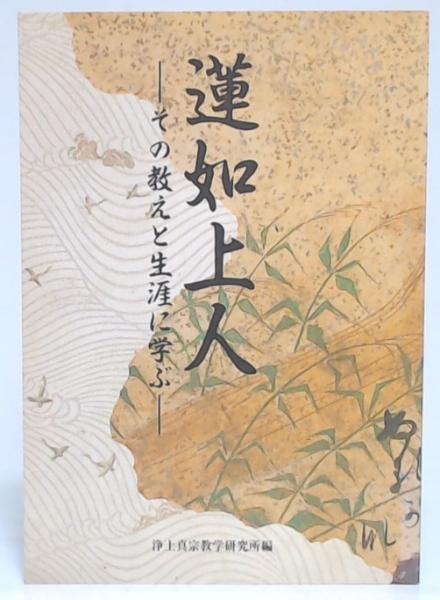 蓮如上人
―その教えと生涯に学ぶ―
浄土真宗教学研究所編